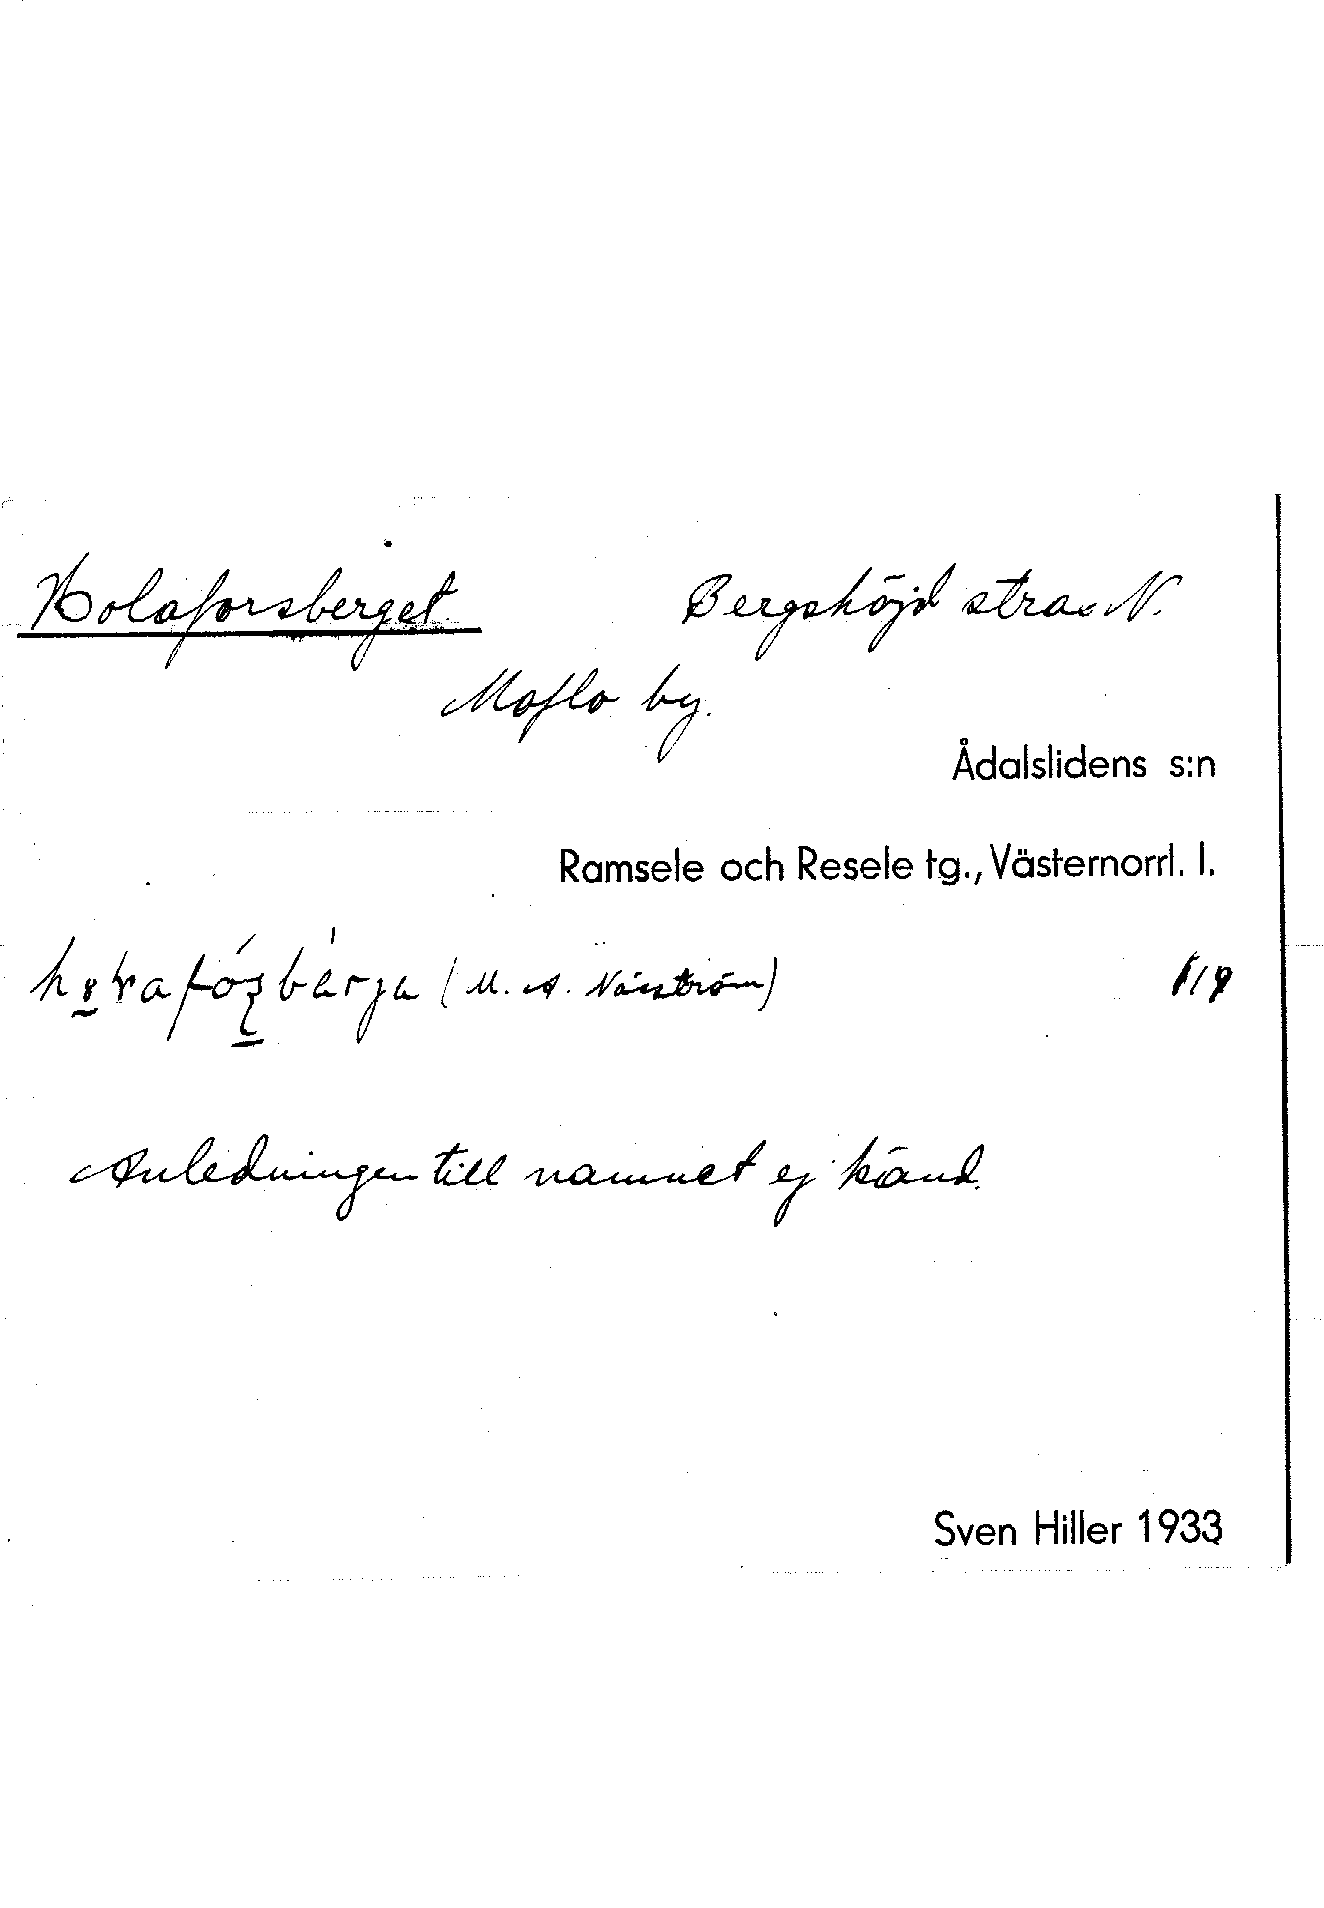 Holaforsberget Bergshöjd strax N.
Moflo by.
Ådalslidens s:n
Ramsele och Resele tg., Västernorrl. l.
(M. A. Näsström)
Anledningen till namnet ej känd.
Sven Hiller 1933